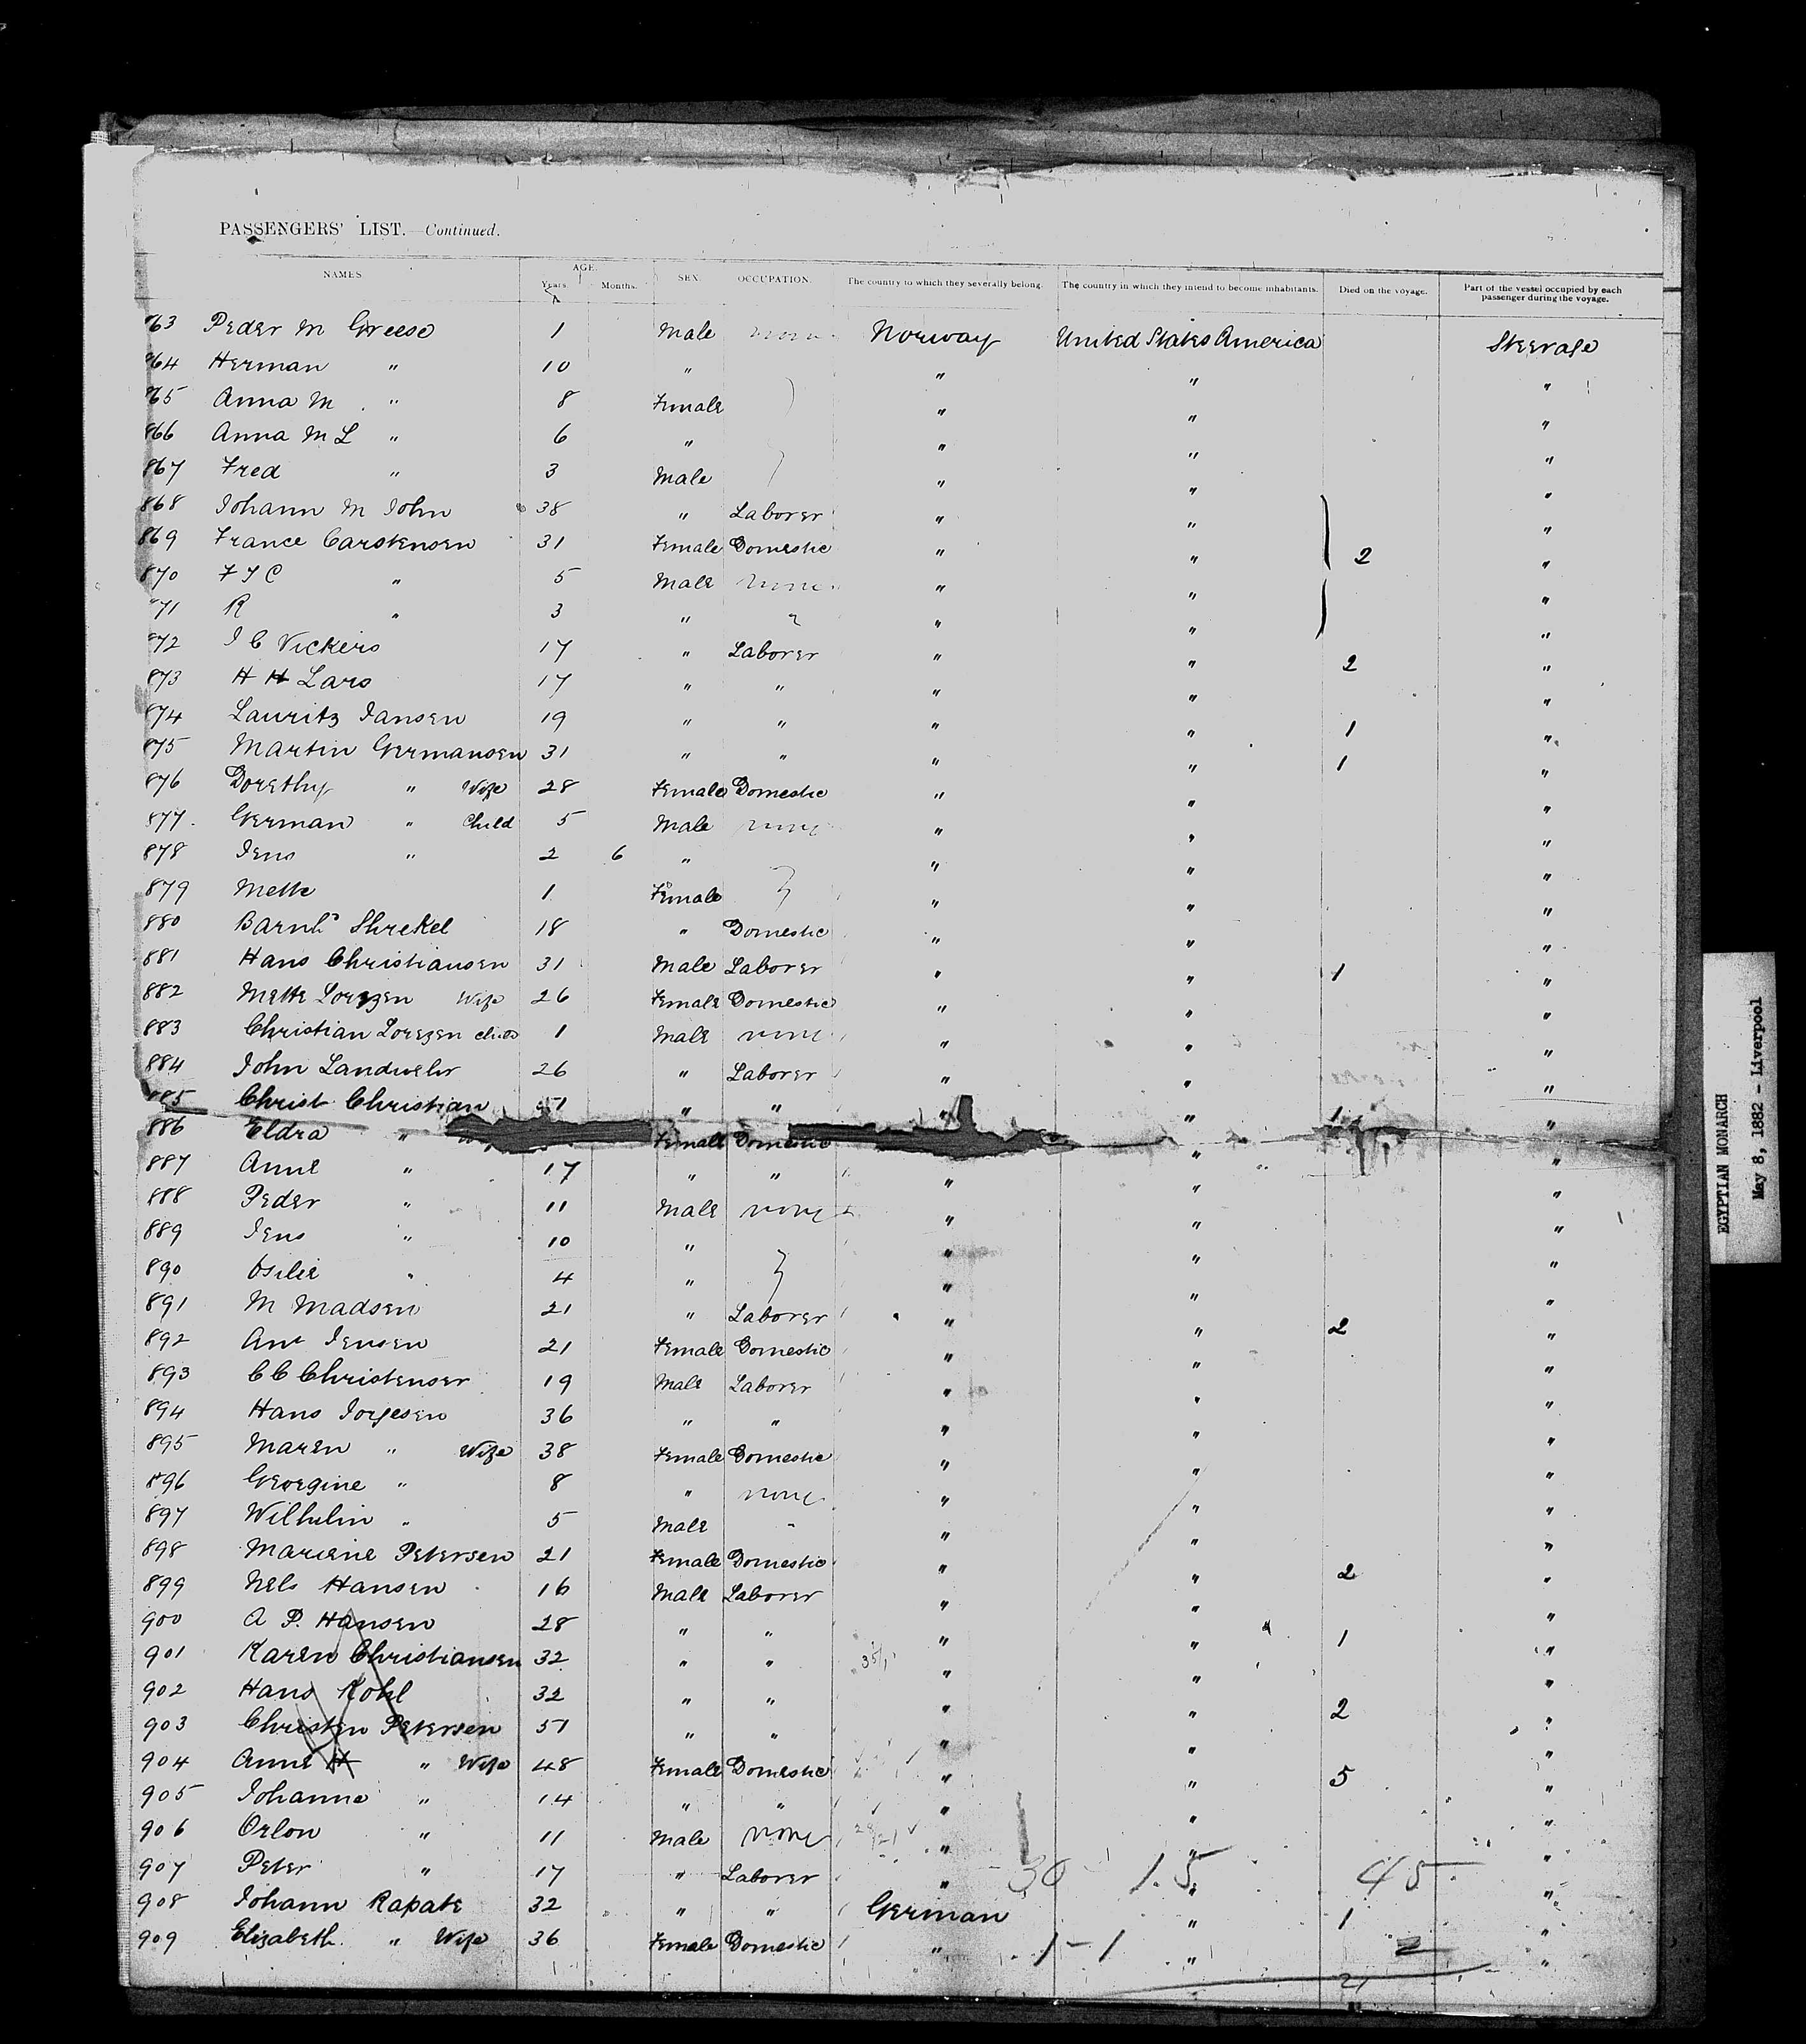 PASSENGERS' LIST.—Continued.
NAMES AGE. Years. Months. SEX. OCCUPATION. The country to which they severally belong. The country in which they intend to become inhabitants. Died on the voyage. Part of the vessel occupied by each passenger during the voyage.
863 Peder M Greese 1 Male none Norway United States America Steerage
864 Herman " 10 " " " "
865 Anna M " 8 Female " " "
866 Anna M L " 6 " " " "
867 Fred " 3 Male " " "
868 Johann M John 38 " Laborer " " "
869 France Carstensen 31 Female Domestic " " 2 "
870 F J C " 5 Male none " " "
871 R " 3 " " " " "
872 J C Vickers 17 " Laborer " " 2 "
873 H H Lars 17 " " " " "
874 Lauritz Jansen 19 " " " " 1 "
875 Martin Germansen 31 " " " " 1 "
876 Dorethy " Wife 28 Female Domestic " " "
877 German " Child 5 Male none " " "
878 Jens " 2 6 " " " "
879 Mette 1 Female " " "
880 Barnh Shrekel 18 " Domestic " " "
881 Hans Christiansen 31 Male Laborer " " 1 "
882 Mette Lorezen Wife 26 Female Domestic " " "
883 Christian Lorezen child 1 Male none " " "
884 John Landwehr 26 " Laborer " " "
885 Christ Christian 51 " " " " 1 "
886 Eldra " Female Domestic " "
887 Anne " 17 " " " " "
888 Peder " 11 Male none " " "
889 Jens " 10 " " " "
890 Osilie " 4 " " " "
891 M Madsen 21 " Laborer " " 2 "
892 Ane Jensen 21 Female Domestic " " "
893 C C Christenser 19 Male Laborer " " "
894 Hans Jorgesen 36 " " " " "
895 Maren " Wife 38 Female Domestic " " "
896 Georgine " 8 " none " " "
897 Wilhelm " 5 Male " " " "
898 Mariene Petersen 21 Female Domestic " " 2 "
899 Nels Hansen 16 Male Laborer " " "
900 A P. Hansen 28 " " " " 1 "
901 Karen Christiansen 32 " " " " "
902 Hans Kohl 32 " " " " 2 "
903 Christen Petersen 51 " " " " "
904 Anne H " Wife 48 Female Domestic " " 5 "
905 Johanne " 14 " " " " "
906 Orlon " 11 Male none " " "
907 Peter " 17 " Laborer " 30 1.5 " 45 "
908 Johann Rapate 32 " " German " 1 "
909 Elizabeth " Wife 36 Female Domestic " 1-1 " 2 "
21
EGYPTIAN MONARCH
May 8, 1882 - Liverpool